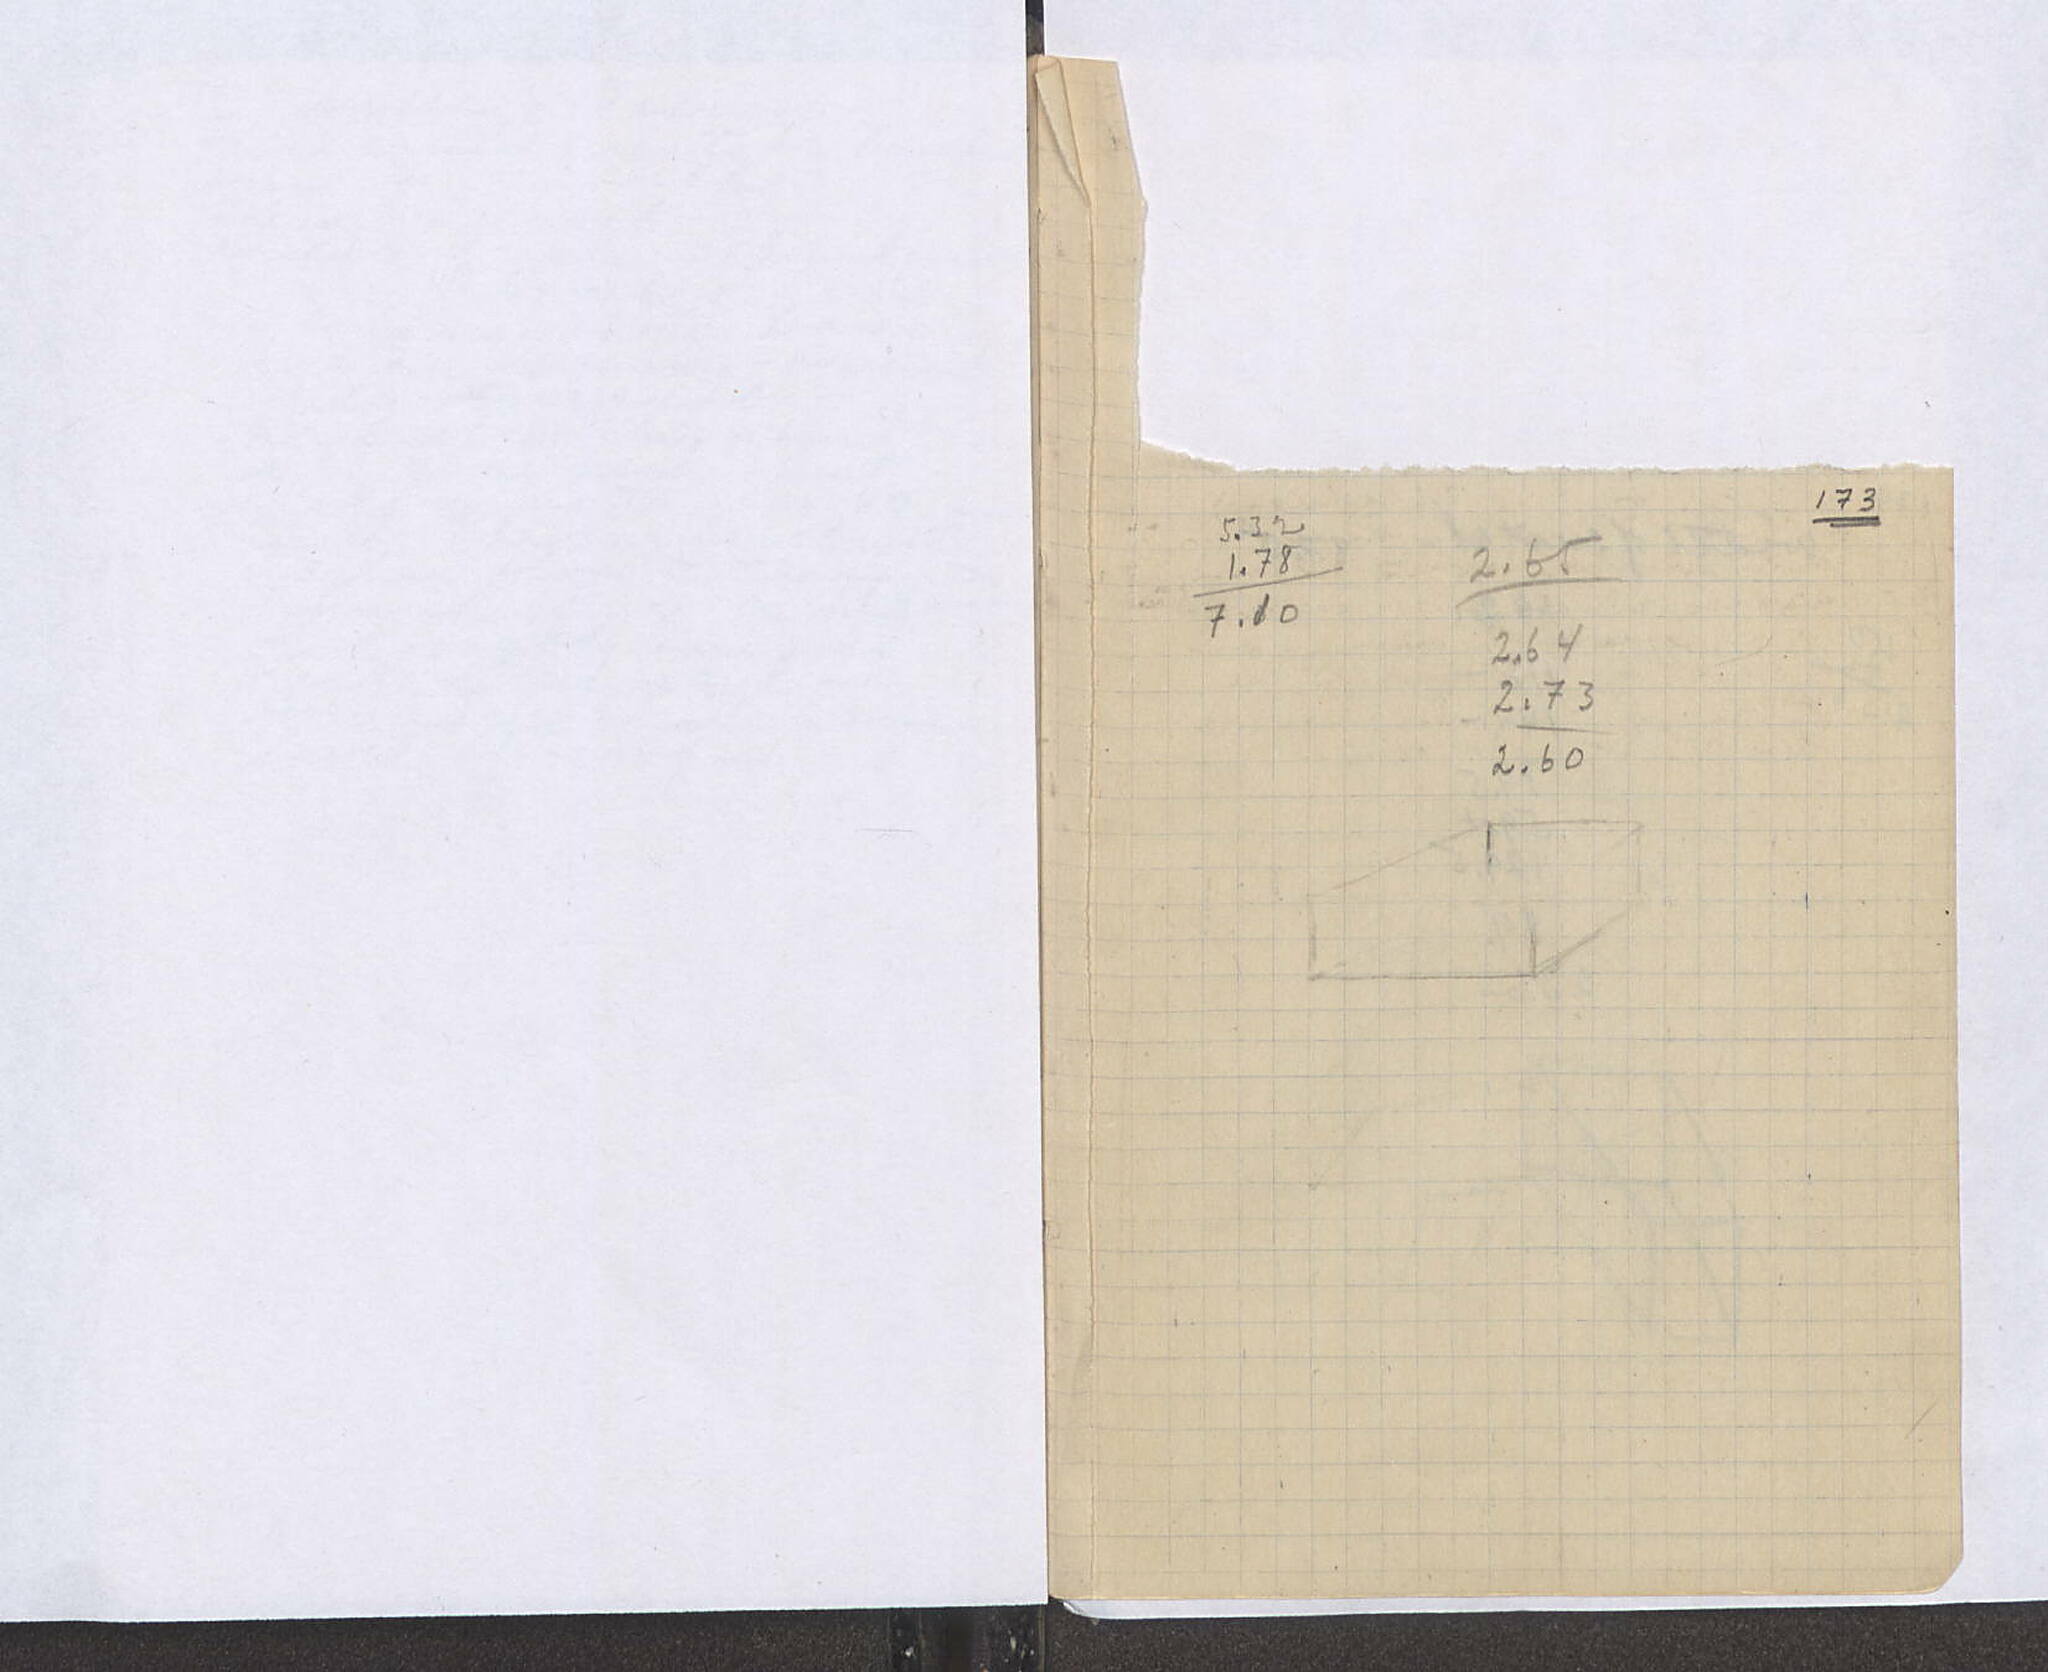 173
5.32
1.78
7.10
2.65
2.64
2.73
2.60